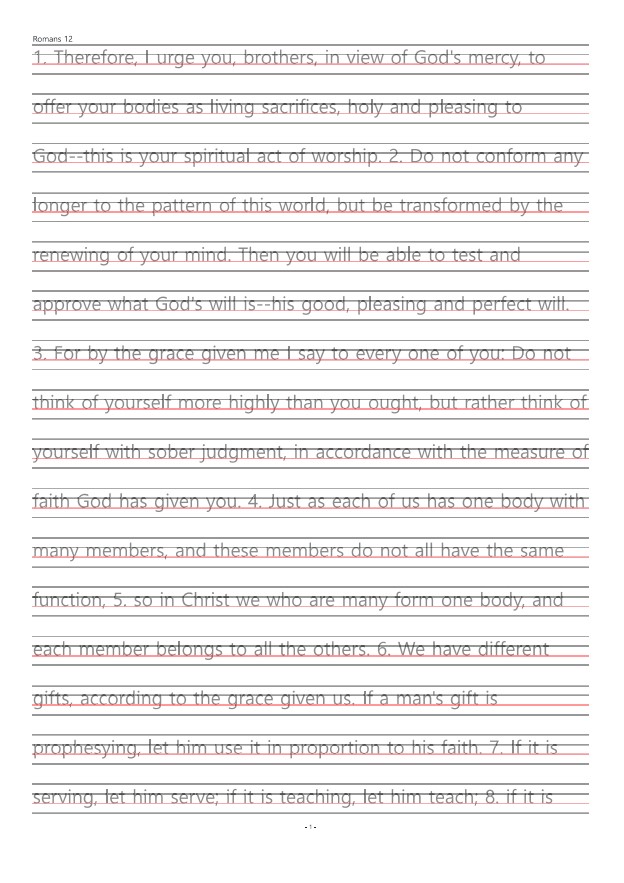 Romans 12
1. Therefore, I urge you, brothers, in view of God's mercy, to
offer your bodies as living sacrifices, holy and pleasing to
God--this is your spiritual act of worship. 2. Do not conform any
longer to the pattern of this world, but be transformed by the
renewing of your mind. Then you will be able to test and
approve what God's will is--his good, pleasing and perfect will.
3. For by the grace given me I say to every one of you: Do not
think of yourself more highly than you ought, but rather think of
yourself with sober judgment, in accordance with the measure of
faith God has given you. 4. Just as each of us has one body with
many members, and these members do not all have the same
function, 5. so in Christ we who are many form one body, and
each member belongs to all the others. 6. We have different
gifts, according to the grace given us. If a man's gift is
prophesying, let him use it in proportion to his faith. 7. If it is
serving, let him serve; if it is teaching, let him teach; 8. if it is
- 1 -